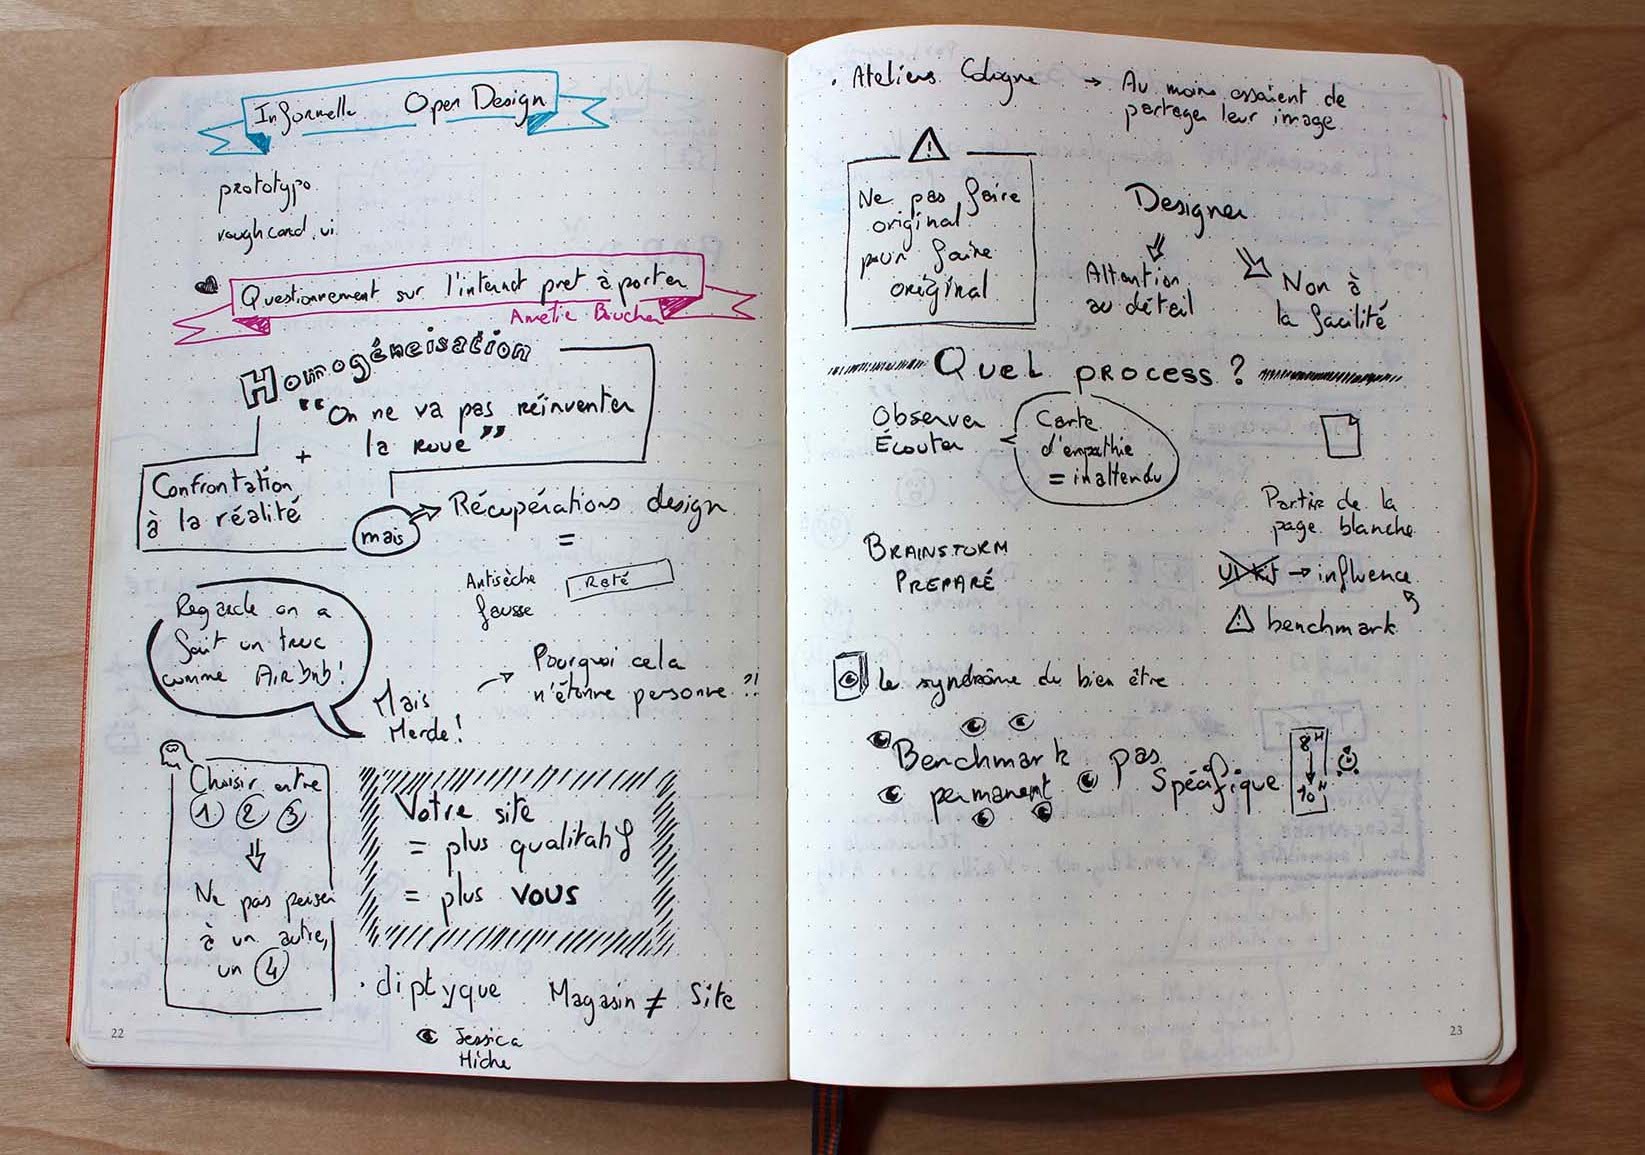 Informelle Open Design
prototypo
roughcard.ui
Questionnement sur l'internet pret à porter
Amélie Boucher
Homogénéisation
"On ne va pas réinventer
la roue"
+
Confrontation
à la réalité
mais
Récupérations design
=
Antisèche
fausse
Raté
Regarde on a
fait un truc
comme Airbnb!
Mais
Merde!
Pourquoi cela
n'étonne personne ?!
Choisir entre
1 2 3
Ne pas penser
à un autre,
un 4
Votre site
= plus qualitatif
= plus VOUS
· diptyque Magasin ≠ Site
Jessica
Hiche
22
· Ateliers Cologne → Au moins essaient de
partager leur image
Ne pas faire
original
pour faire
original
Designer
Attention
au détail
Non à
la facilité
QUEL PROCESS ?
Observer
Écouter
Carte
d'empathie
= inattendu
Partir de la
page blanche
BRAINSTORM
PREPARÉ
UI Kit → influence
benchmark
Le syndrôme du bien être
Benchmark pas
permanent Spécifique
8H
10H
23